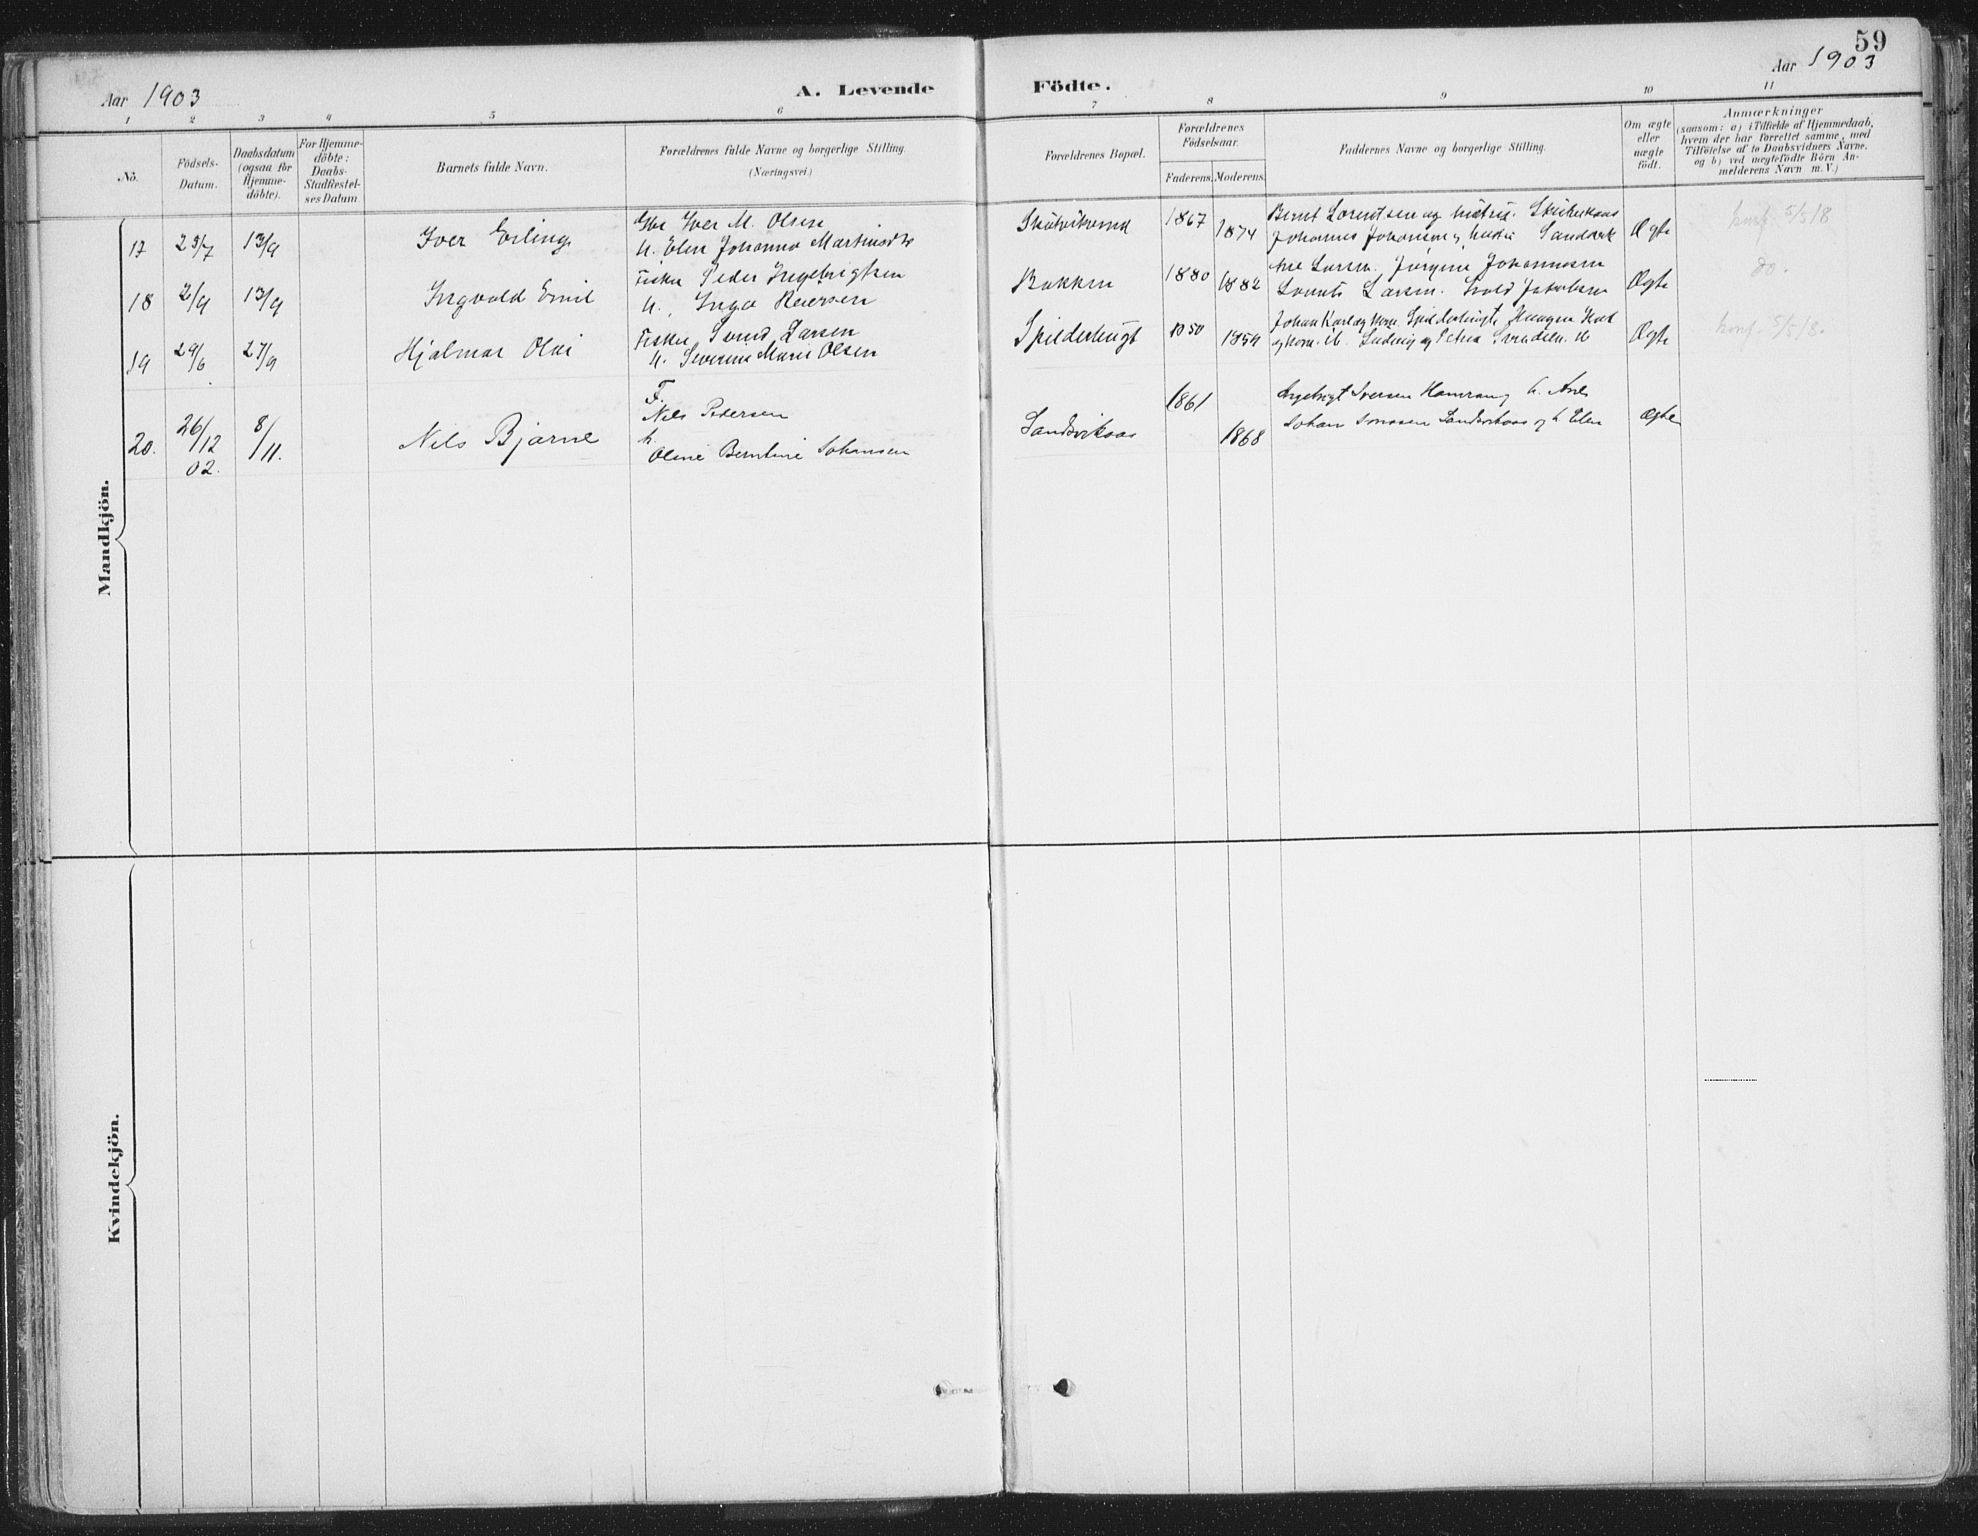 59
Aar 1903
A. Levende Födte.
Aar 1903
1 2 3 4 5 6 7 8 9 10 11
No.
Födsels-
Datum.
Daabsdatum
(ogsaa for
Hjemme-
döbte).
For Hjemme-
döbte:
Daabs-
Stadfæstel-
ses Datum.
Barnets fulde Navn.
Forældrenes fulde Navne og borgerlige Stilling.
(Næringsvei.)
Forældrenes Bopæl.
Forældrenes
Födselsaar.
Faderens. Moderens.
Faddernes Navne og borgerlige Stilling.
Om ægte
eller
uægte
födt.
Anmærkninger
(saasom: a) i Tilfælde af Hjemmedaab,
hvem der har forrettet samme, med
Tilföielse af to Daabsvidners Navne,
og b) ved uegtefödte Börn An-
melderens Navn m. V.)
Mandkjön.
17 23/7 13/9 Iver Erling
Gbr Iver M. Olsen
h. Elen Johanna
1867 1874
Bernt Lorentsen og
Johannes Johansen
Ægte
konf. 5/5 18
18 2/9 13/9 Ingvald Emil
Fisker Peder Ingebrigtsen
h. Inga Reiersen
Bakken 1880 1882
Are Larsen. Jørgine Johannesen
Larsen. Jakobsen
Ægte
do.
19 29/6 27/9 Hjalmar Olai
Fisker Svend Larsen
h. Severine Marie Olsen
Spilderbugt 1850 1859
Johan Karl og Kone. Spilderbugt
og Kone. Ludvig og Petra Svendsen
Ægte
konf. 5/5 18.
20. 26/12 02. 8/11. Nels Bjarne
F.
Nils Pedersen
h.
Oline Berntine Johansen
Sandvikaas 1861 1868
Ingebrigt Iversen h. Ane
Johan Sandvikaas og h Elen
Ægte
Kvindekjön.